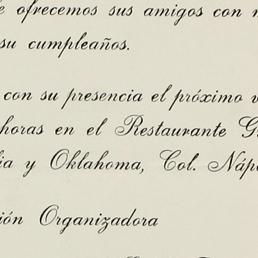 e ofrecemos sus amigos con m
su cumpleaños.
con su presencia el próximo v
horas en el Restaurante G
ia y Oklahoma, Col. Nápo
ión Organizadora